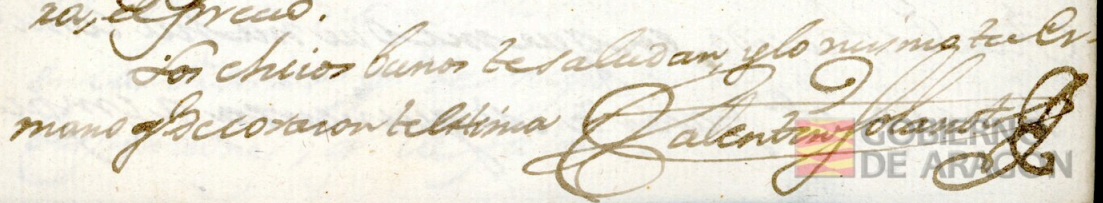 ra, el Precio.
Los chicos bunos te saludan, y lo mismo tu Er-
mano q De corazon te estima Valentin Solanot
GOBIERNO
DE ARAGON